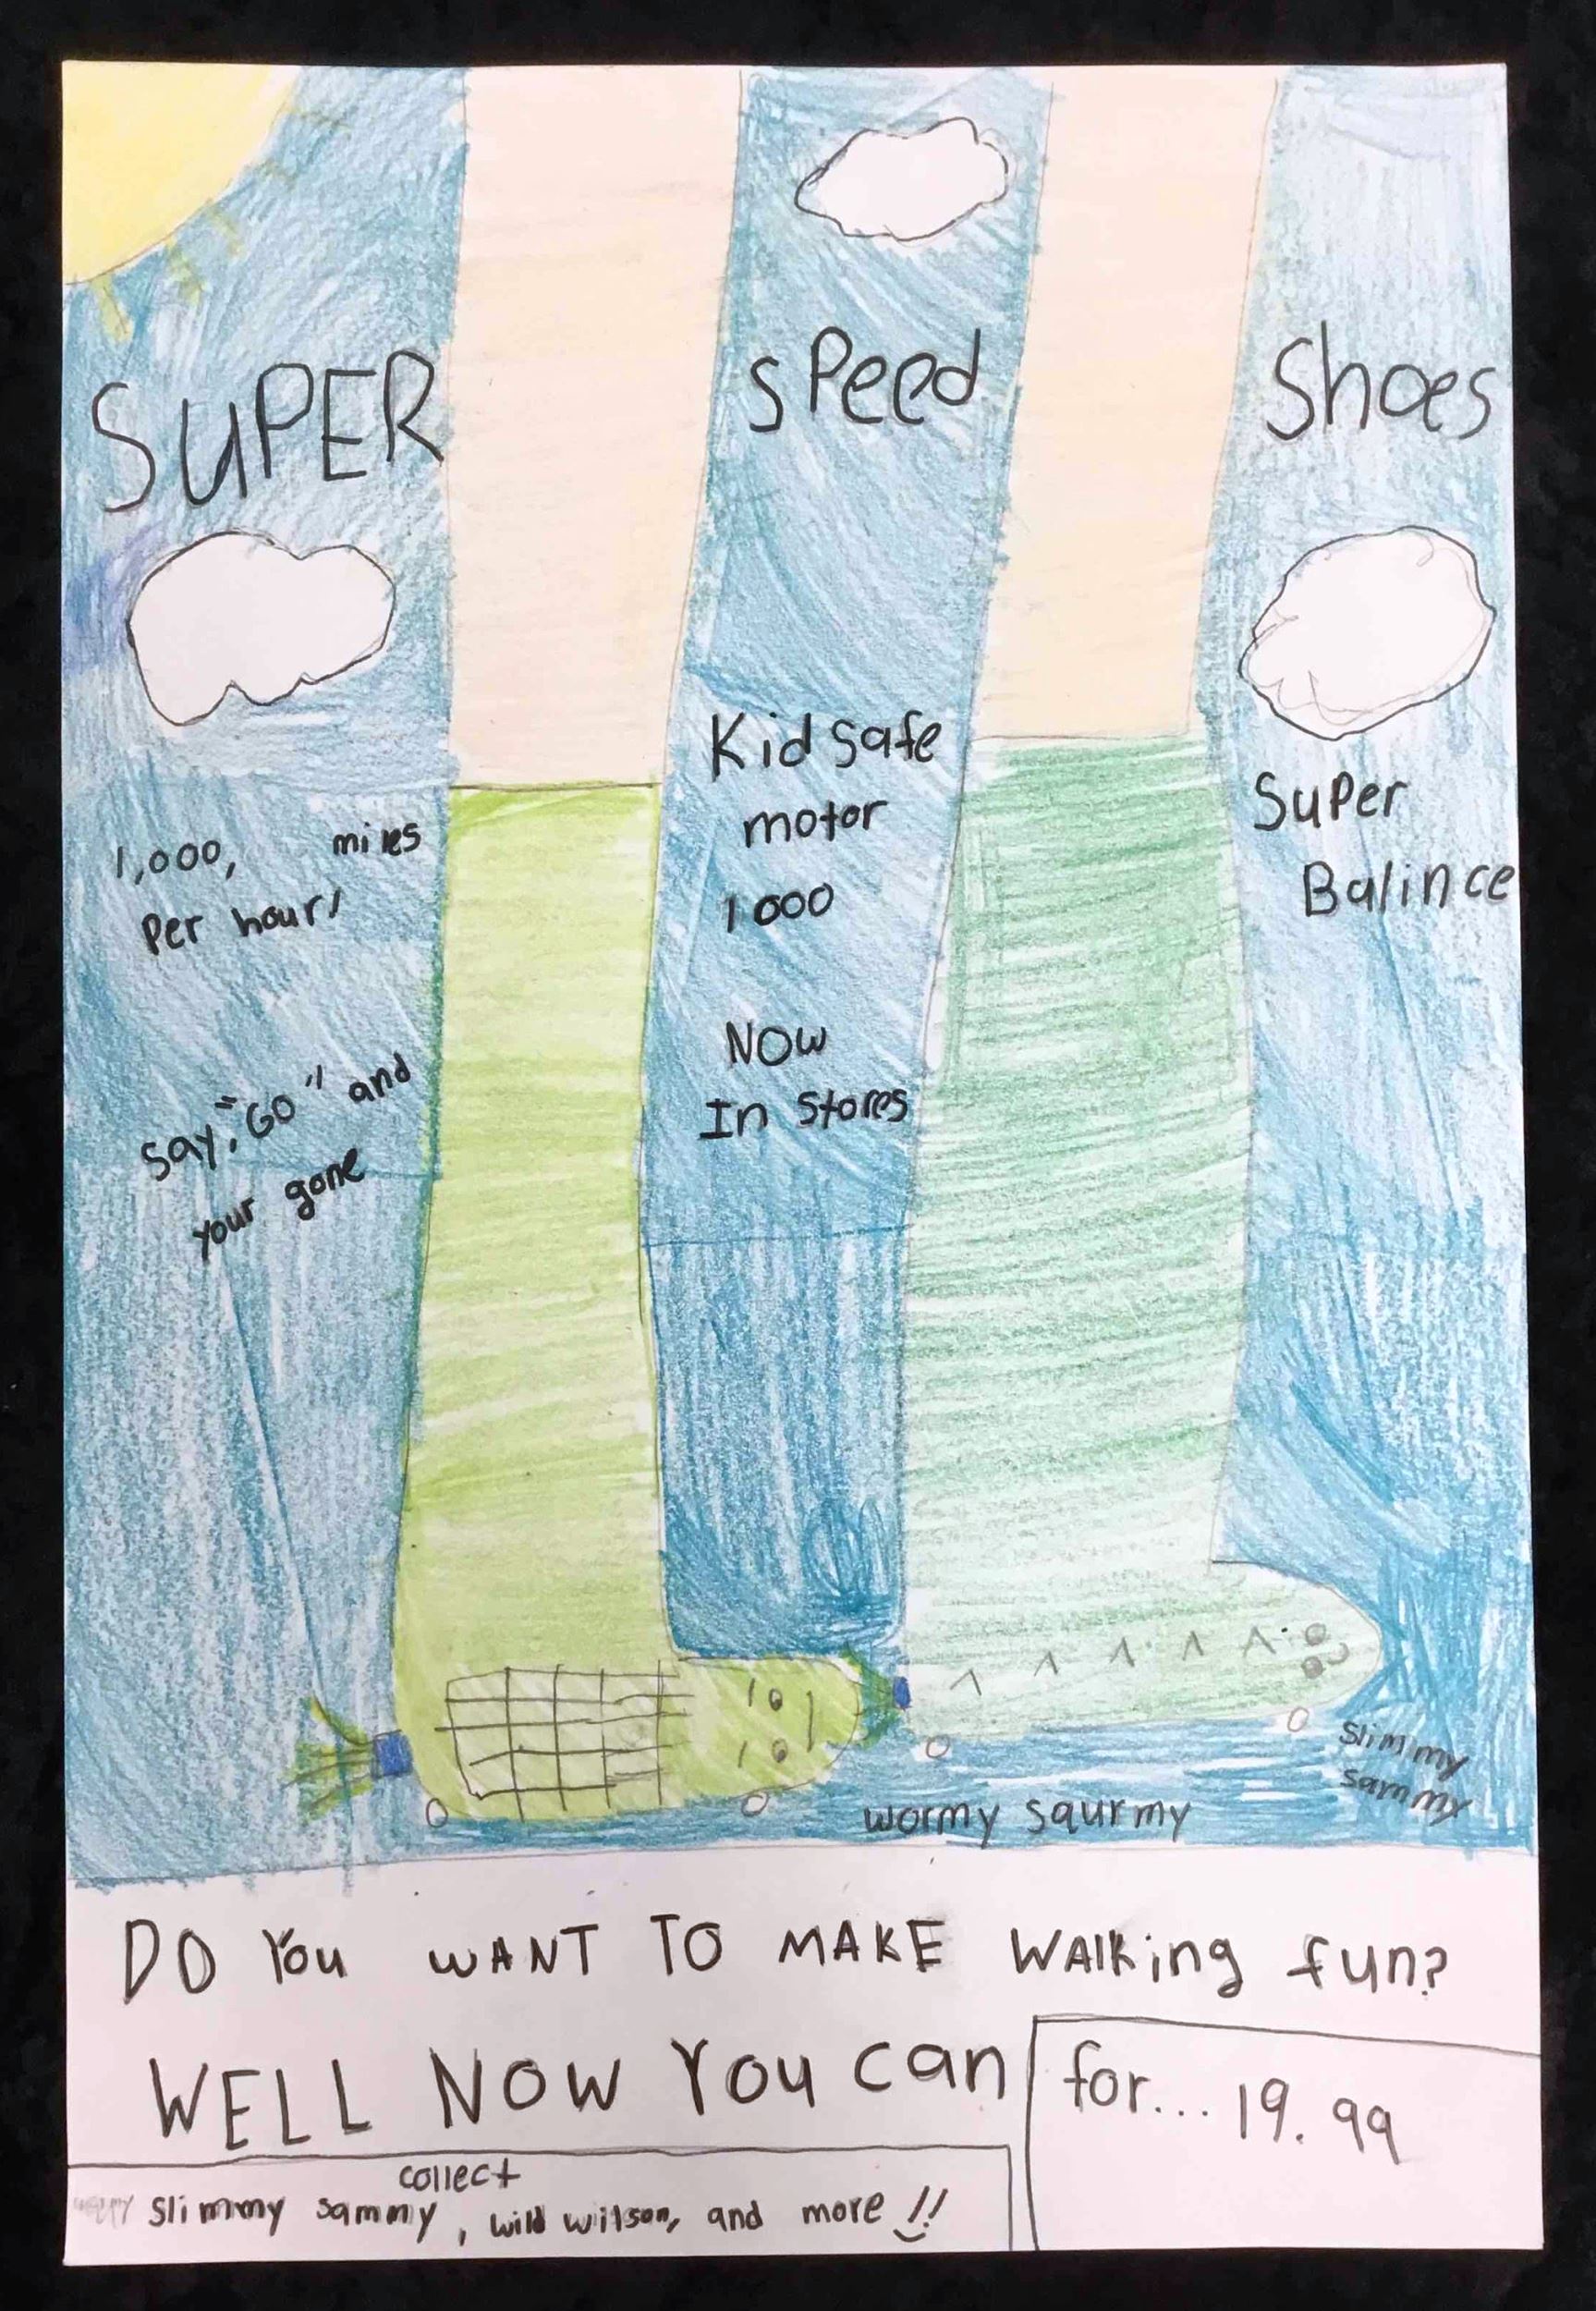 SUPER speed Shoes
1,000, miles
Per hour!
Say, "GO" and
your gone
Kid safe
motor
1000
NOW
In stores
Super
Balince
Slimmy
sammy
wormy squrmy
DO You WANT TO MAKE WAlking fun?
WELL NOW YOU can
for... 19.99
collect
slimmy sammy, wild wilson, and more !!